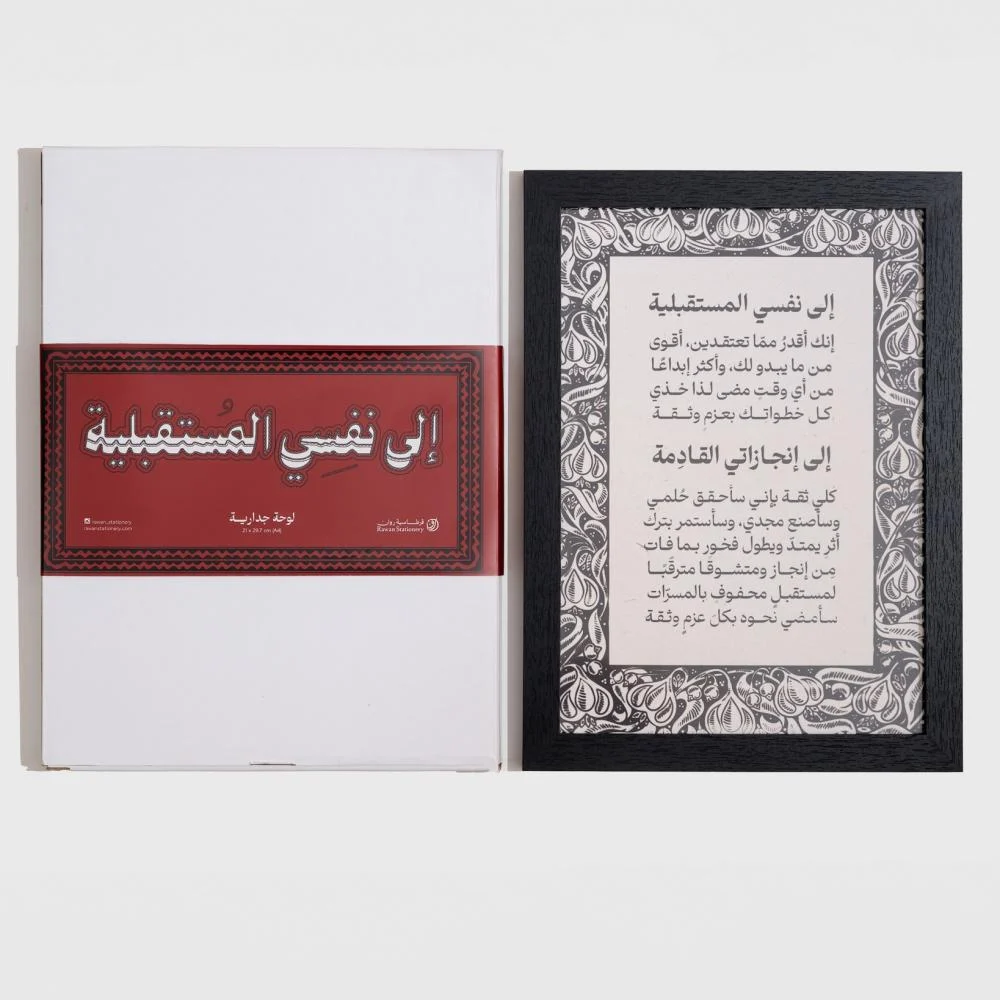 إلى نفسي المُستقبلية
لوحة جدارية
21 x 29.7 cm (A4)
قرطاسية روان
Rawan Stationery
rawan_stationery
rawanstationery.com
إلى نفسي المستقبلية
إنك أقدرُ ممّا تعتقدين، أقوى
من ما يبدو لك، وأكثر إبداعًا
من أي وقتٍ مضى لذا خذي
كل خطواتك بعزمٍ وثقة
إلى إنجازاتي القادِمة
كُلي ثقة بإني سأحقق حُلمي
وسأصنع مجدي، وسأستمر بترك
أثرٍ يمتدّ ويطول فخور بما فات
مِن إنجاز ومتشوقًا مترقّبًا
لمستقبلٍ محفوفٍ بالمسرّات
سأمضي نحوه بكلّ عزمٍ وثقة